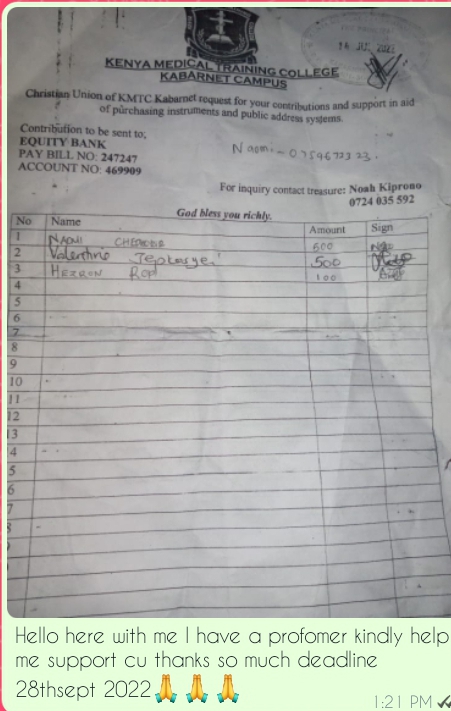 KENYA MEDICAL TRAINING COLLEGE
KABARNET CAMPUS
Christian Union of KMTC Kabarnet request for your contributions and support in aid
of purchasing instruments and public address systems.
Contribution to be sent to;
EQUITY BANK
PAY BILL NO: 247247
ACCOUNT NO: 469909
Naomi -
For inquiry contact treasure: Noah Kiprono
0724 035 592
God bless you richly.
No Name Amount Sign
1 NAOMI 500
2 Valentine 500
3 HEZRON ROP 100
4
5
6
7
8
9
10
11
12
13
4
5
6
7
Hello here with me I have a profomer kindly help
me support cu thanks so much deadline
28thsept 2022🙏🙏🙏
1:21 PM